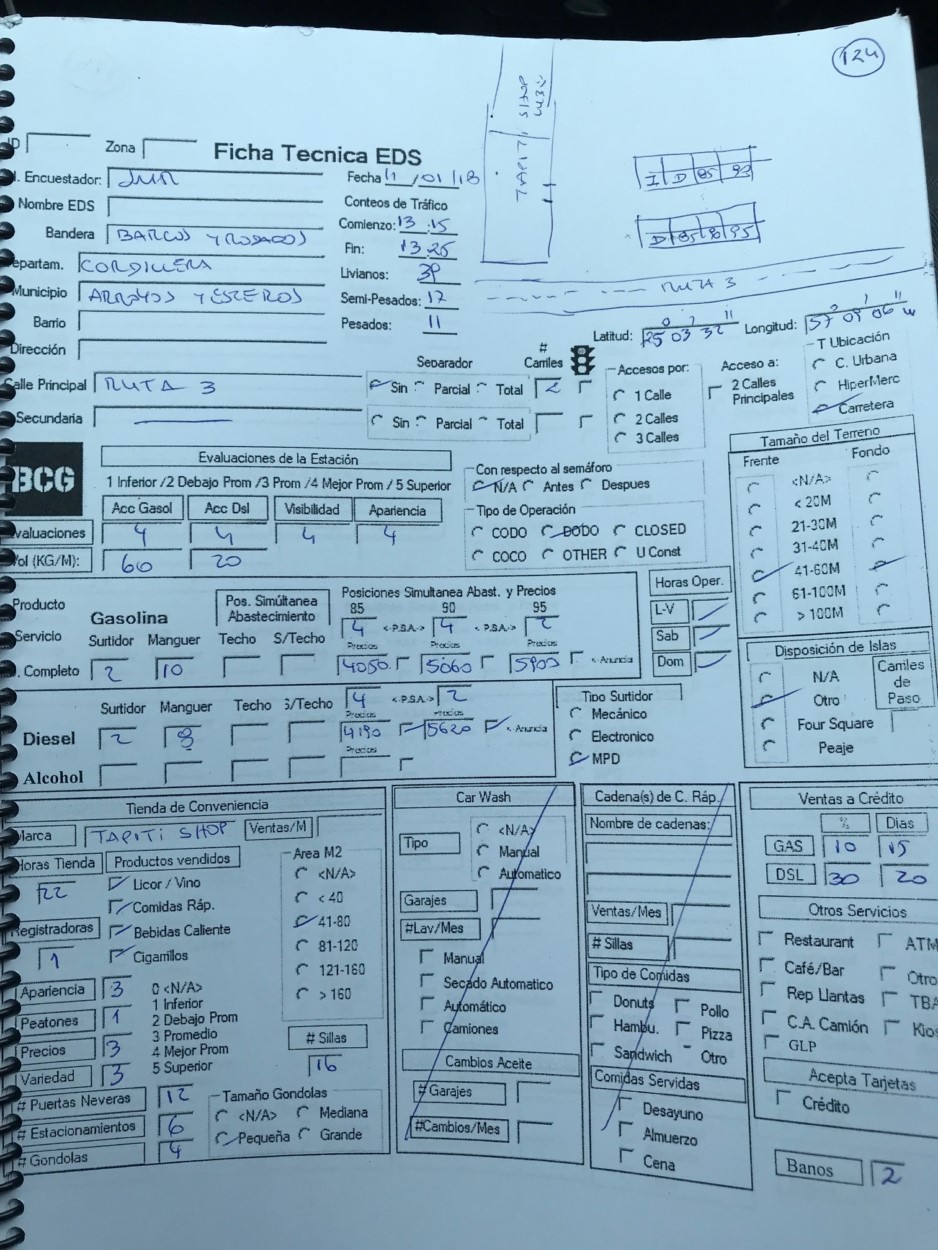 124
TAPITI SHOP
I D 85 93
D 85 90 95
RUTA 3
Zona
Ficha Tecnica EDS
Encuestador: JMR
Fecha 11/01/18
Nombre EDS
Conteos de Tráfico
Bandera BARCOS Y RODADOS
Comienzo: 13:15
Fin: 13:25
epartam. CORDILLERA
Livianos: 39
Municipio ARROYOS Y ESTEROS
Semi-Pesados: 17
Barrio
Pesados: 11
Latitud: 25 03 32 Longitud: 57 09 06 W
Dirección
Separador # Carriles
Accesos por: Acceso a: T Ubicación
Calle Principal RUTA 3
Sin Parcial Total 2
1 Calle
2 Calles
3 Calles
2 Calles Principales
C. Urbana
HiperMerc
Carretera
Secundaria
Sin Parcial Total
BCG
Evaluaciones de la Estación
1 Inferior /2 Debajo Prom /3 Prom /4 Mejor Prom / 5 Superior
Acc Gasol Acc Dsl Visibilidad Apariencia
valuaciones 4 4 4 4
Vol (KG/M): 60 20
Con respecto al semáforo
N/A Antes Despues
Tipo de Operación
CODO DODO CLOSED
COCO OTHER U Const
Tamaño del Terreno
Frente Fondo
<N/A>
< 20M
21-30M
31-40M
41-60M
61-100M
> 100M
Producto
Servicio
Gasolina
Pos. Simúltanea Abastecimiento
Posiciones Simultanea Abast. y Precios
85 90 95
4 <-P.S.A.-> 4 <-P.S.A.-> 2
Surtidor Manguer Techo S/Techo
Precios Precios Precios
Completo 2 10 4050 5060 5900 <-Anuncia
Horas Oper.
L-V
Sab
Dom
Surtidor Manguer Techo S/Techo
4 <-P.S.A.-> 2
Precios Precios
Diesel 2 8 4190 5620 <-Anuncia
Precios
Alcohol
Tipo Surtidor
Mecánico
Electronico
MPD
Disposición de Islas
N/A
Otro
Four Square
Peaje
Carriles de Paso
Tienda de Conveniencia
Marca TAPITI SHOP Ventas/M
Horas Tienda 22
Productos vendidos
Licor / Vino
Comidas Ráp.
Bebidas Caliente
Cigarrillos
Registradoras 1
Area M2
<N/A>
< 40
41-80
81-120
121-160
> 160
Apariencia 3
Peatones 1
Precios 3
Variedad 3
0 <N/A>
1 Inferior
2 Debajo Prom
3 Promedio
4 Mejor Prom
5 Superior
# Sillas
16
# Puertas Neveras 12
# Estacionamientos 6
# Gondolas 4
Tamaño Gondolas
<N/A> Mediana
Pequeña Grande
Car Wash
Tipo
<N/A>
Manual
Automatico
Garajes
#Lav/Mes
Manual
Secado Automatico
Automático
Camiones
Cambios Aceite
# Garajes
#Cambios/Mes
Cadena(s) de C. Ráp.
Nombre de cadenas:
Ventas/Mes
# Sillas
Tipo de Comidas
Donuts Pollo
Hambu. Pizza
Sandwich Otro
Comidas Servidas
Desayuno
Almuerzo
Cena
Ventas a Crédito
% Dias
GAS 10 15
DSL 30 20
Otros Servicios
Restaurant ATM
Café/Bar Otro
Rep Llantas TBA
C.A. Camión Kios
GLP
Acepta Tarjetas
Crédito
Banos 2